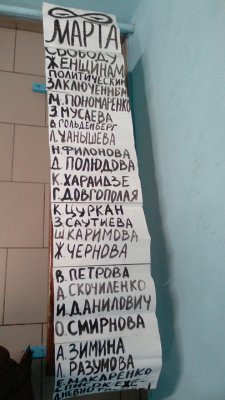 8
МАРТА
СВОБОДУ
ЖЕНЩИНАМ
ПОЛИТИЧЕСКИМ
ЗАКЛЮЧЕННЫМ
М.ПОНОМАРЕНКО
З.МУСАЕВА
В.ГОЛЬДЕНБЕРГ
Л.ЧАНЫШЕВА
Н.ФИЛОНОВА
Д.ПОЛЮДОВА
К.ХАРАИДЗЕ
Г.ДОВГОПОЛАЯ
К.ЦУРКАН
З.САУТИЕВА
Ш.КАРИМОВА
Ж.ЧЕРНОВА
В.ПЕТРОВА
А.СКОЧИЛЕНКО
И.ДАНИЛОВИЧ
О.СМИРНОВА
А.ЗИМИНА
Л.РАЗУМОВА
Е.МАКАРЕНКО
СПИСОК ЕЖЕ-
ДНЕВНО